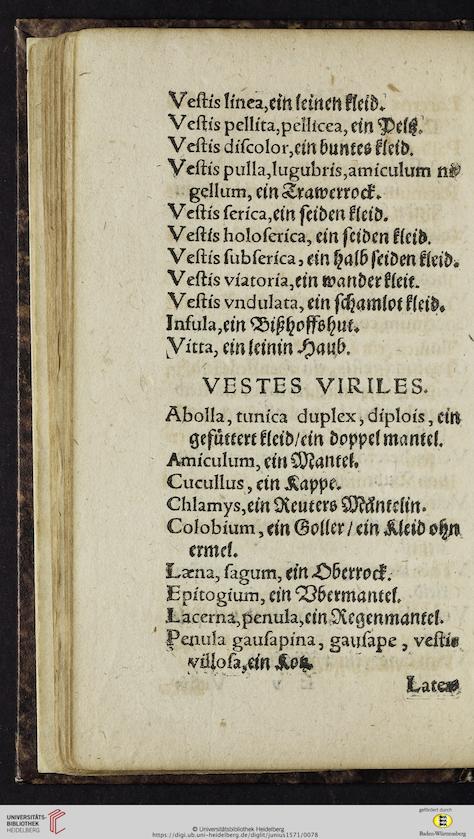 Veſtis linea,ein leinen kleid.
Veſtis pellita,pellicea, ein Peltz.
Veſtis diſcolor,ein buntes kleid.
Veſtis pulla,lugubris,amiculum ni⸗
gellum, ein Trawerrock.
Veſtis ſerica,ein ſeiden kleid.
Veſtis holoſerica, ein ſeiden kleid.
Veſtis ſubſerica, ein halb ſeiden kleid.
Veſtis viatoria,ein wander kleit.
Veſtis vndulata, ein ſchamlot kleid.
Infula,ein Bißhoffshut.
Vitta, ein leinin Haub.
VESTES VIRILES.
Abolla, tunica duplex, diplois, ein
gefüttert kleid/ein doppel mantel.
Amiculum, ein Mantel.
Cucullus, ein Kappe.
Chlamys,ein Reuters Mäntelin.
Colobium, ein Goller/ ein Kleid ohn
ermel.
Læna, ſagum, ein Oberrock.
Epitogium, ein Vbermantel.
Lacerna,penula,ein Regenmantel.
Penula gauſapina, gauſape, veſtis
villoſa,ein Kotz.
Later⸗
UNIVERSITÄTS-
BIBLIOTHEK
HEIDELBERG
© Universitätsbibliothek Heidelberg
https://digi.ub.uni-heidelberg.de/diglit/junius1571/0078
gefördert durch
Baden-Württemberg